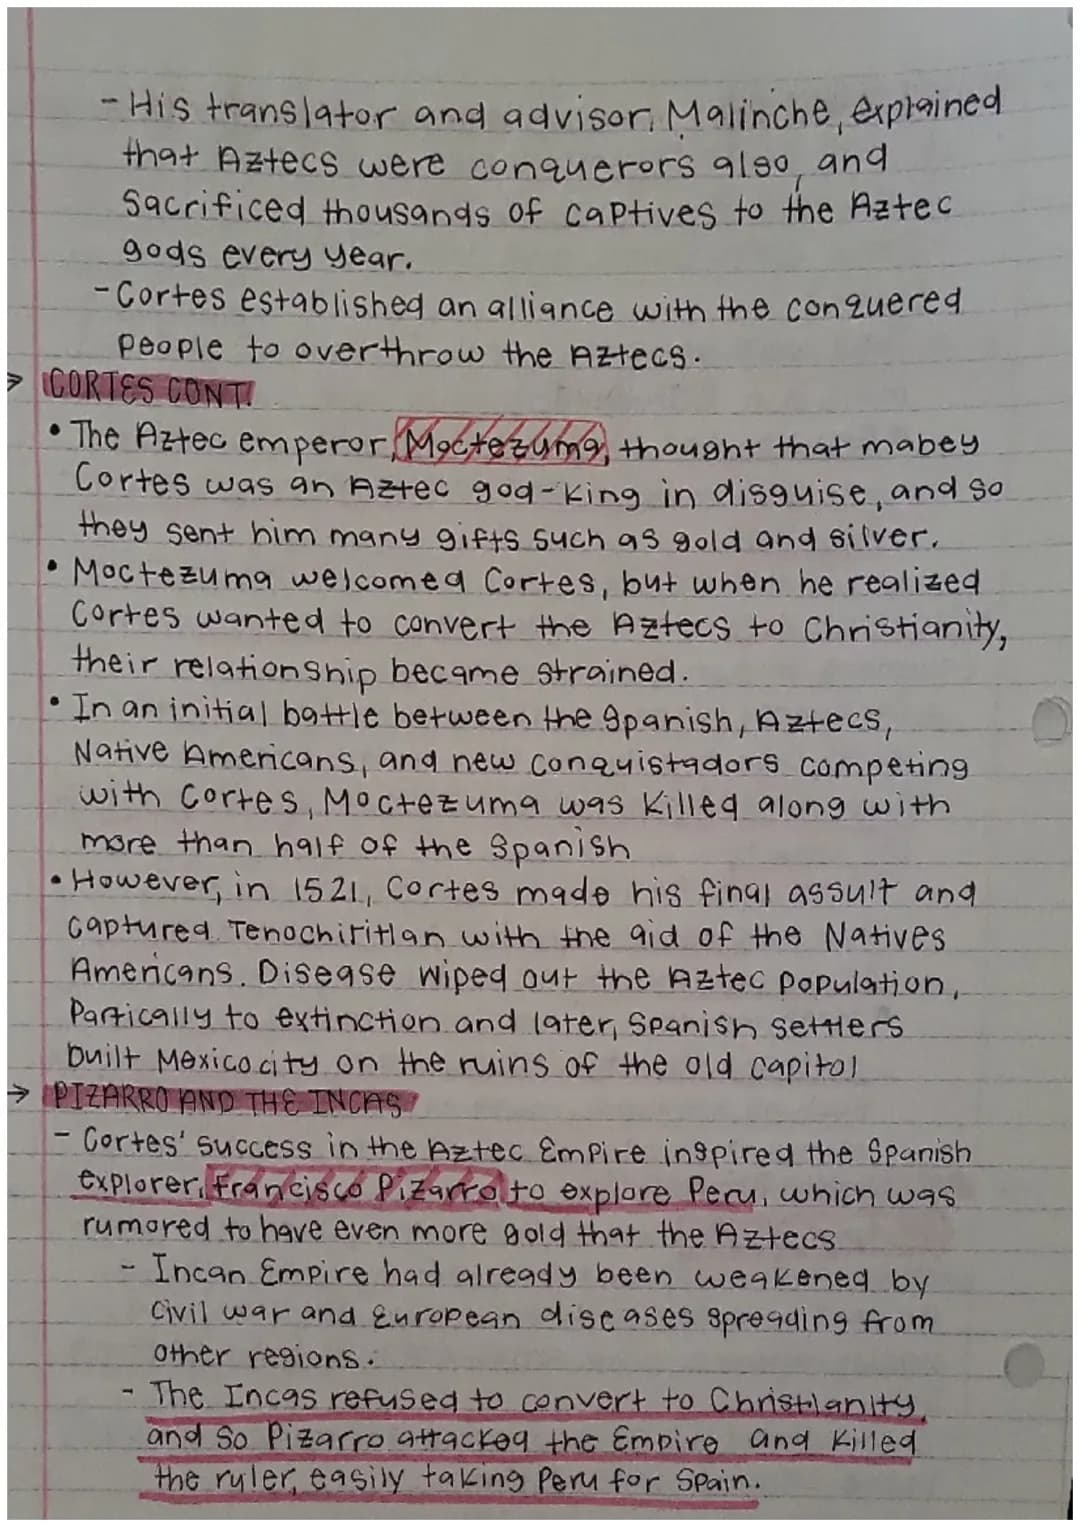 - His translator and advisor, Malinche, explained
that Aztecs were conquerors also, and
Sacrificed thousands of captives to the Aztec
gods every year.
- Cortes established an alliance with the conquered
People to overthrow the Aztecs.
→ CORTES CONT.
• The Aztec emperor, Moctezuma, thought that mabey
Cortes was an Aztec god-king in disguise, and so
they sent him many gifts such as gold and silver.
• Moctezuma welcomed Cortes, but when he realized
Cortes wanted to convert the Aztecs to Christianity,
their relationship became strained.
• In an initial battle between the Spanish, Aztecs,
Native Americans, and new conquistadors competing
with Cortes, Moctezuma was killed along with
more than half of the Spanish
• However, in 1521, Cortes made his final assult and
captured Tenochiritlan with the aid of the Natives
Americans. Disease wiped out the Aztec population,
Partically to extinction and later, Spanish settlers
built Mexico city on the ruins of the old capitol
→ PIZARRO AND THE INCAS
- Cortes' success in the Aztec Empire inspired the Spanish
explorer, Francisco Pizarro to explore Peru, which was
rumored to have even more gold that the Aztecs
- Incan Empire had already been weakened by
civil war and European diseases spreading from
other regions.
- The Incas refused to convert to Christianity,
and so Pizarro attacked the Empire and killed
the ruler, easily taking Peru for Spain.